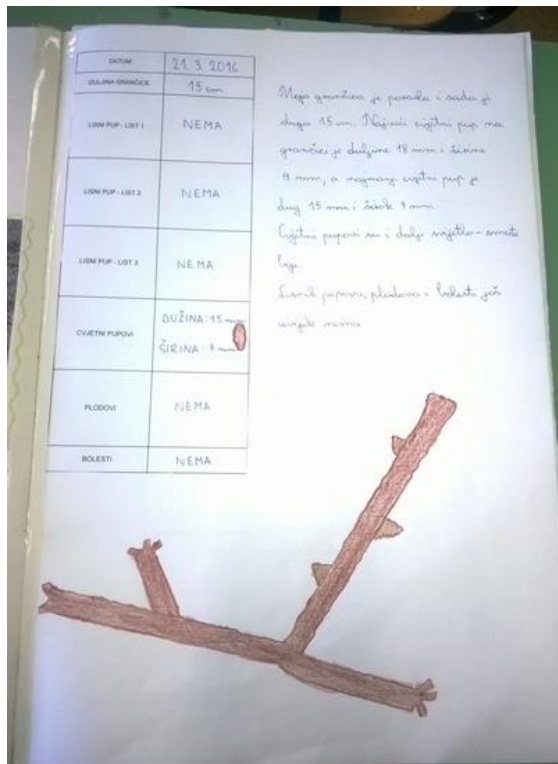 DATUM 21. 3. 2016
DULJINA GRANČICE 15 cm
LISNI PUP - LIST 1 NEMA
LISNI PUP - LIST 2 NEMA
LISNI PUP - LIST 3 NEMA
CVJETNI PUPOVI DUŽINA: 15 mm
ŠIRINA: 7 mm
PLODOVI NEMA
BOLESTI NEMA
Moja grančica je porasla i sada je
duga 15 cm. Najveći cvjetni pup na
grančici je duljine 18 mm i širine
9 mm, a najmanji cvjetni pup je
dug 15 mm i širok 7 mm.
Cvjetni pupovi su i dalje svjetlo-smeđe
boje.
Lisnih pupova, plodova i bolesti još
uvijek nema